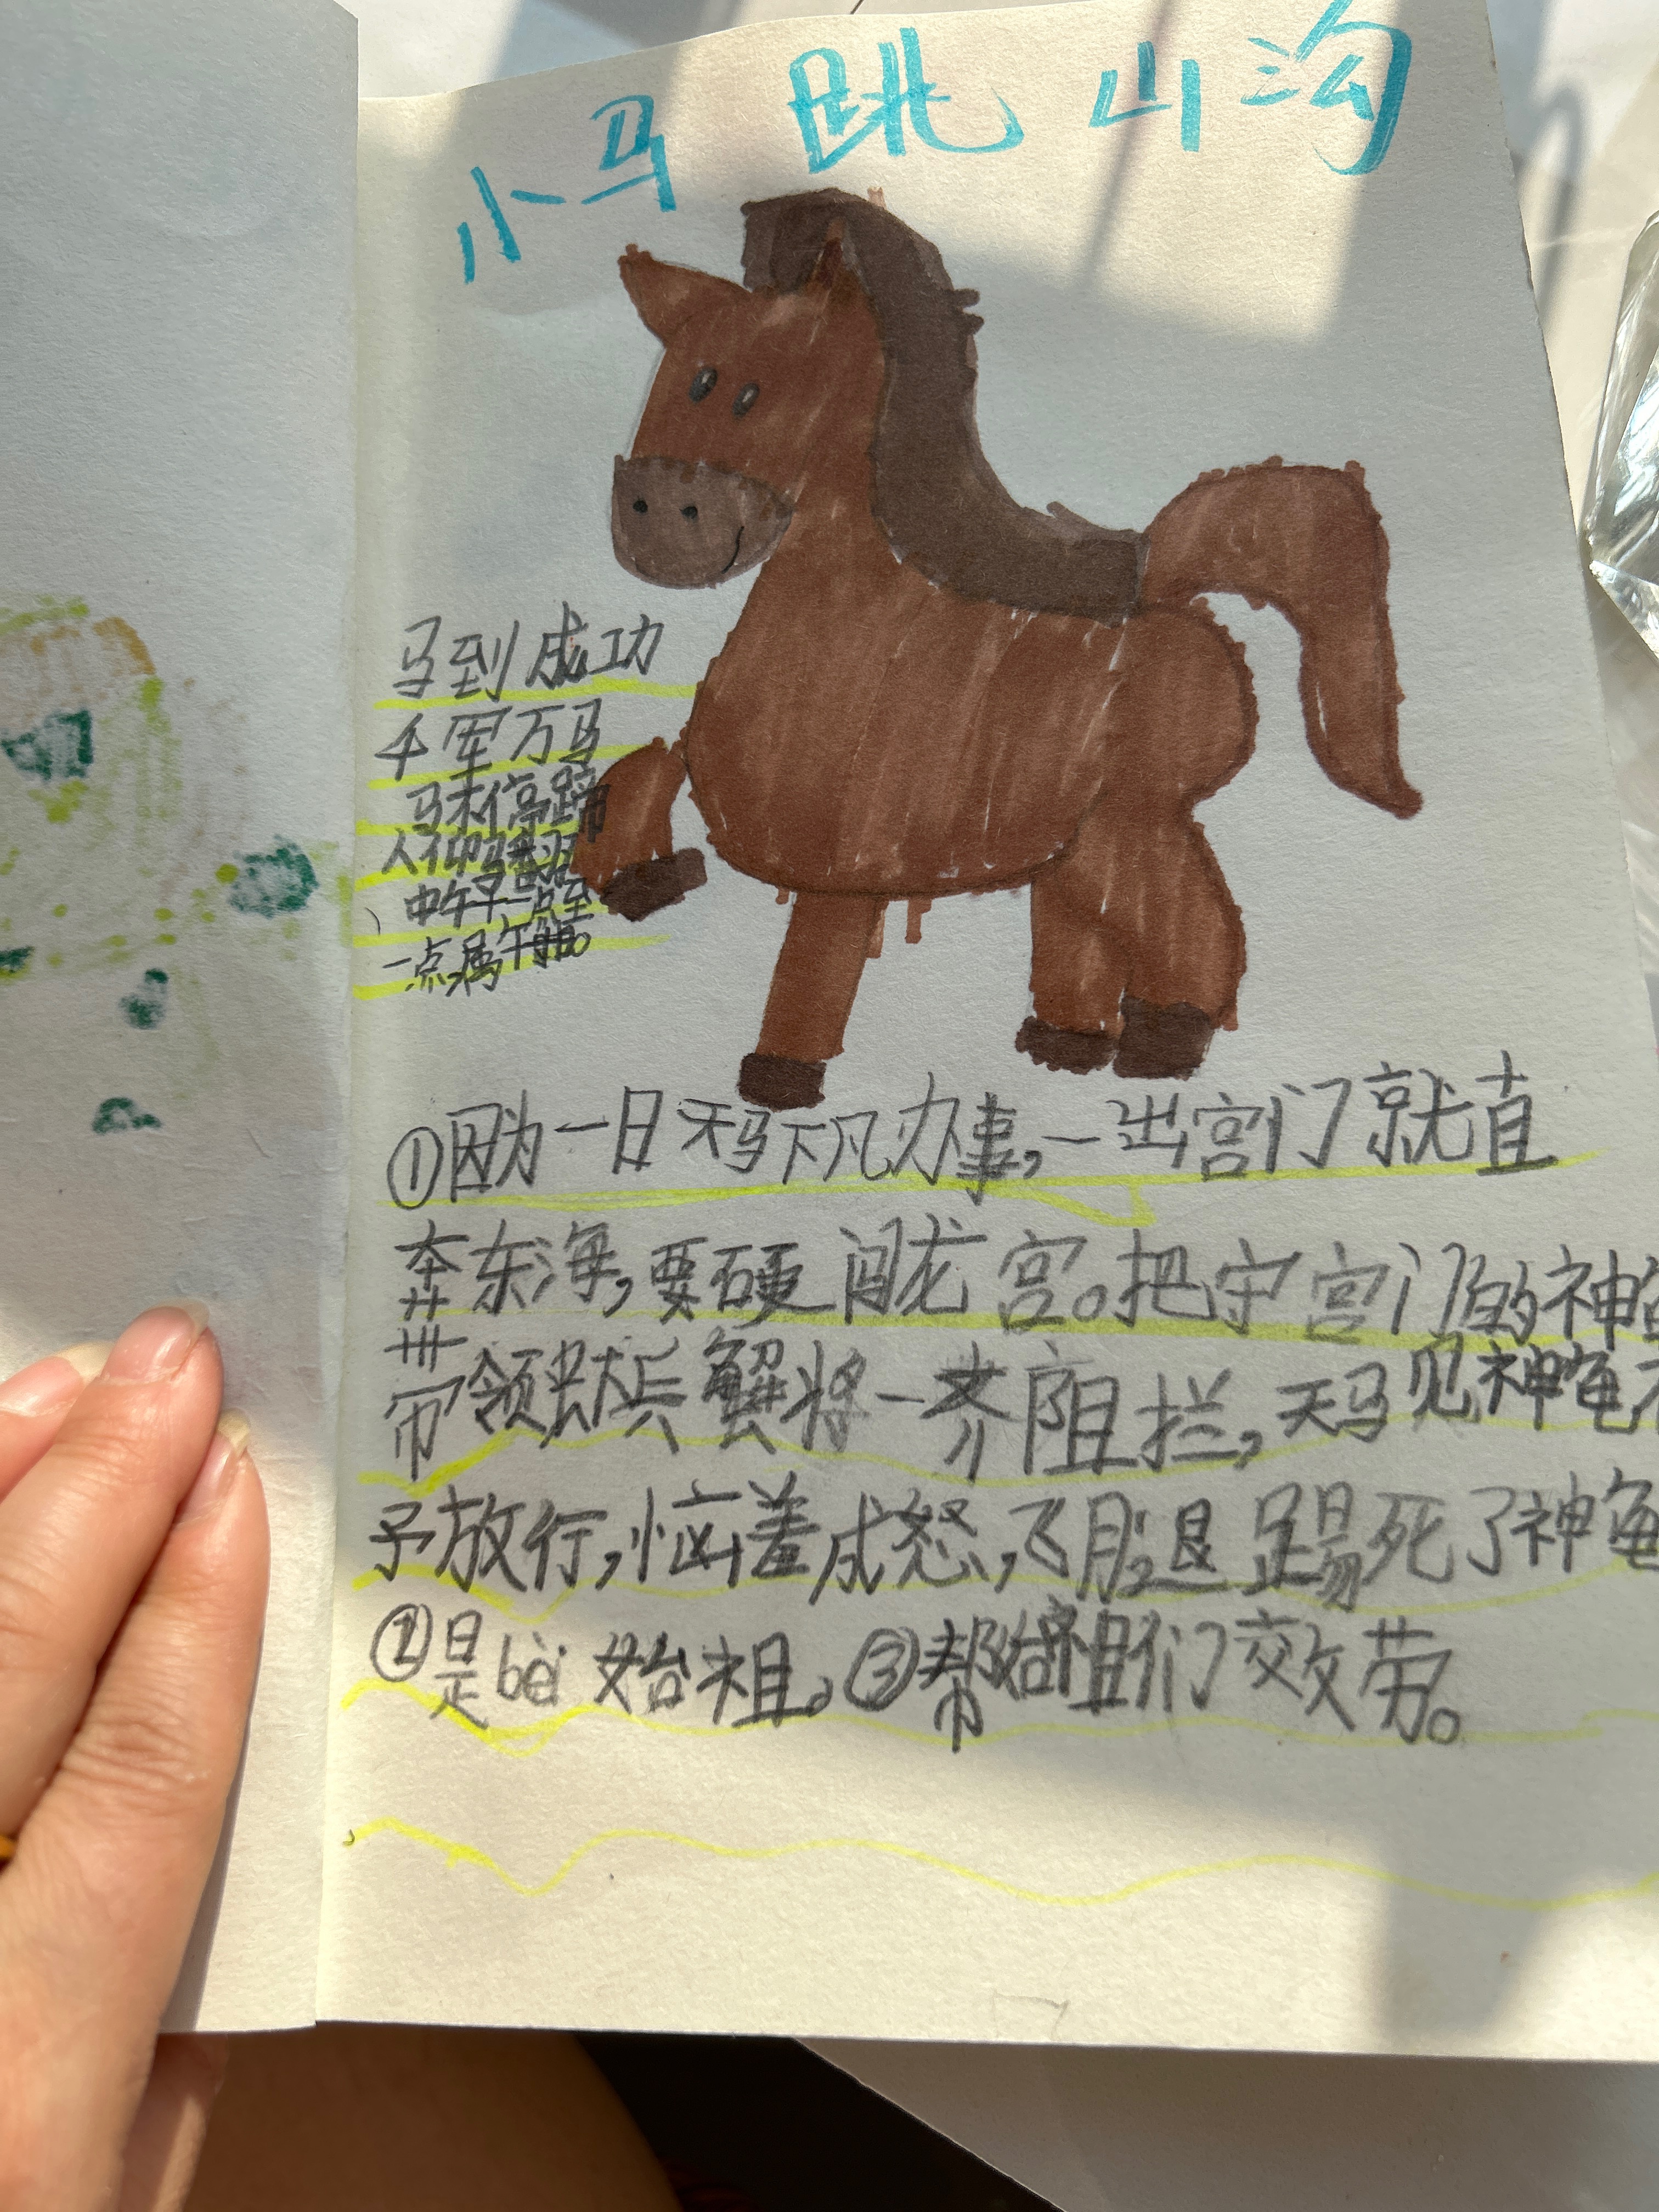 小马跳山沟
马到成功
千军万马
马不停蹄
人仰马翻
中午早一点至
一点,属午马。
①因为一日天马下凡办事,一出宫门就直
奔东海,要硬闯龙宫。把守宫门的神龟
带领虾兵蟹将一齐阻拦,天马见神龟不
予放行,恼羞成怒,飞腿踢死了神龟
②是bèi始祖。③帮始祖们效劳。